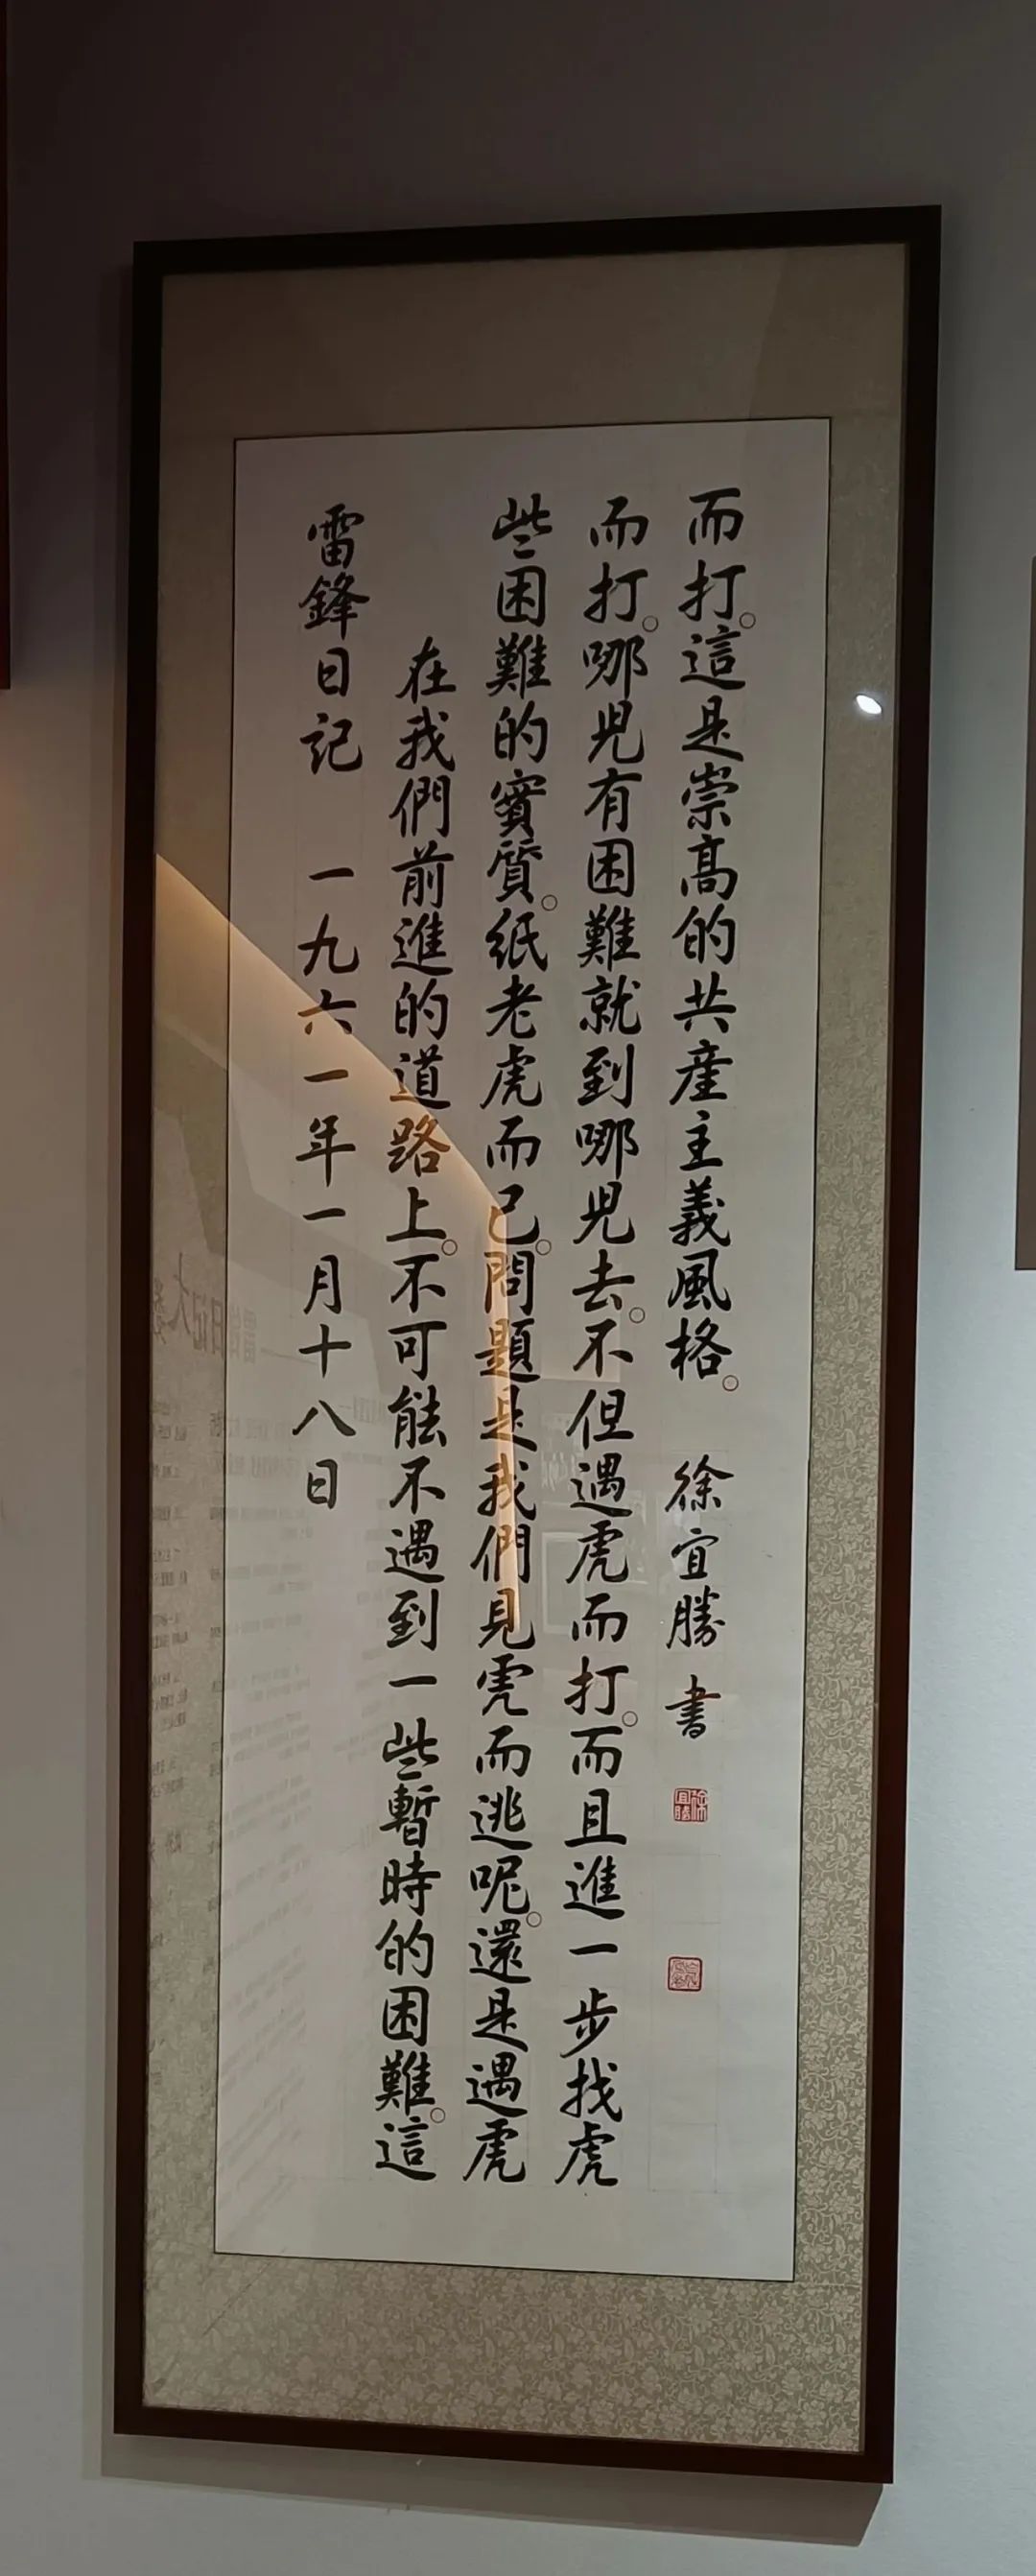 雷鋒日記 一九六一年一月十八日
在我們前進的道路上。不可能不遇到一些暫時的困難。這
些困難的實質。紙老虎而已。問題是我們見虎而逃呢。還是遇虎
而打。哪兒有困難就到哪兒去。不但遇虎而打。而且進一步找虎
而打。這是崇高的共産主義風格。 徐宜勝書